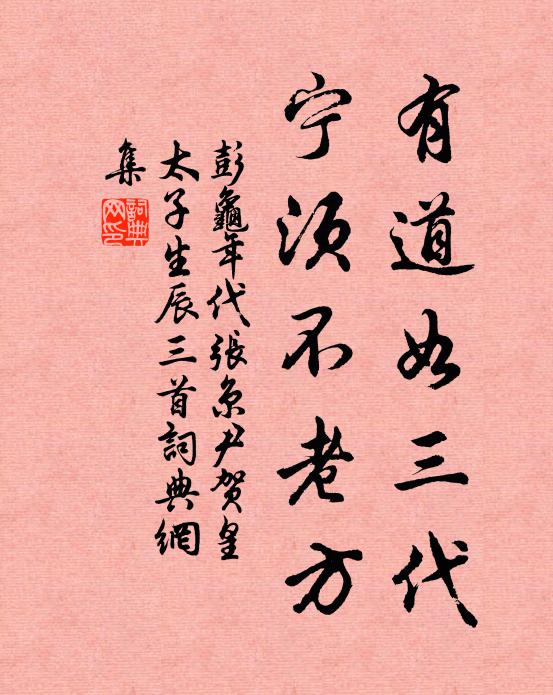 有道如三代
宁须不老方
彭龜年代張京尹賀皇
太子生辰三首詞典網
集
詞典
网印